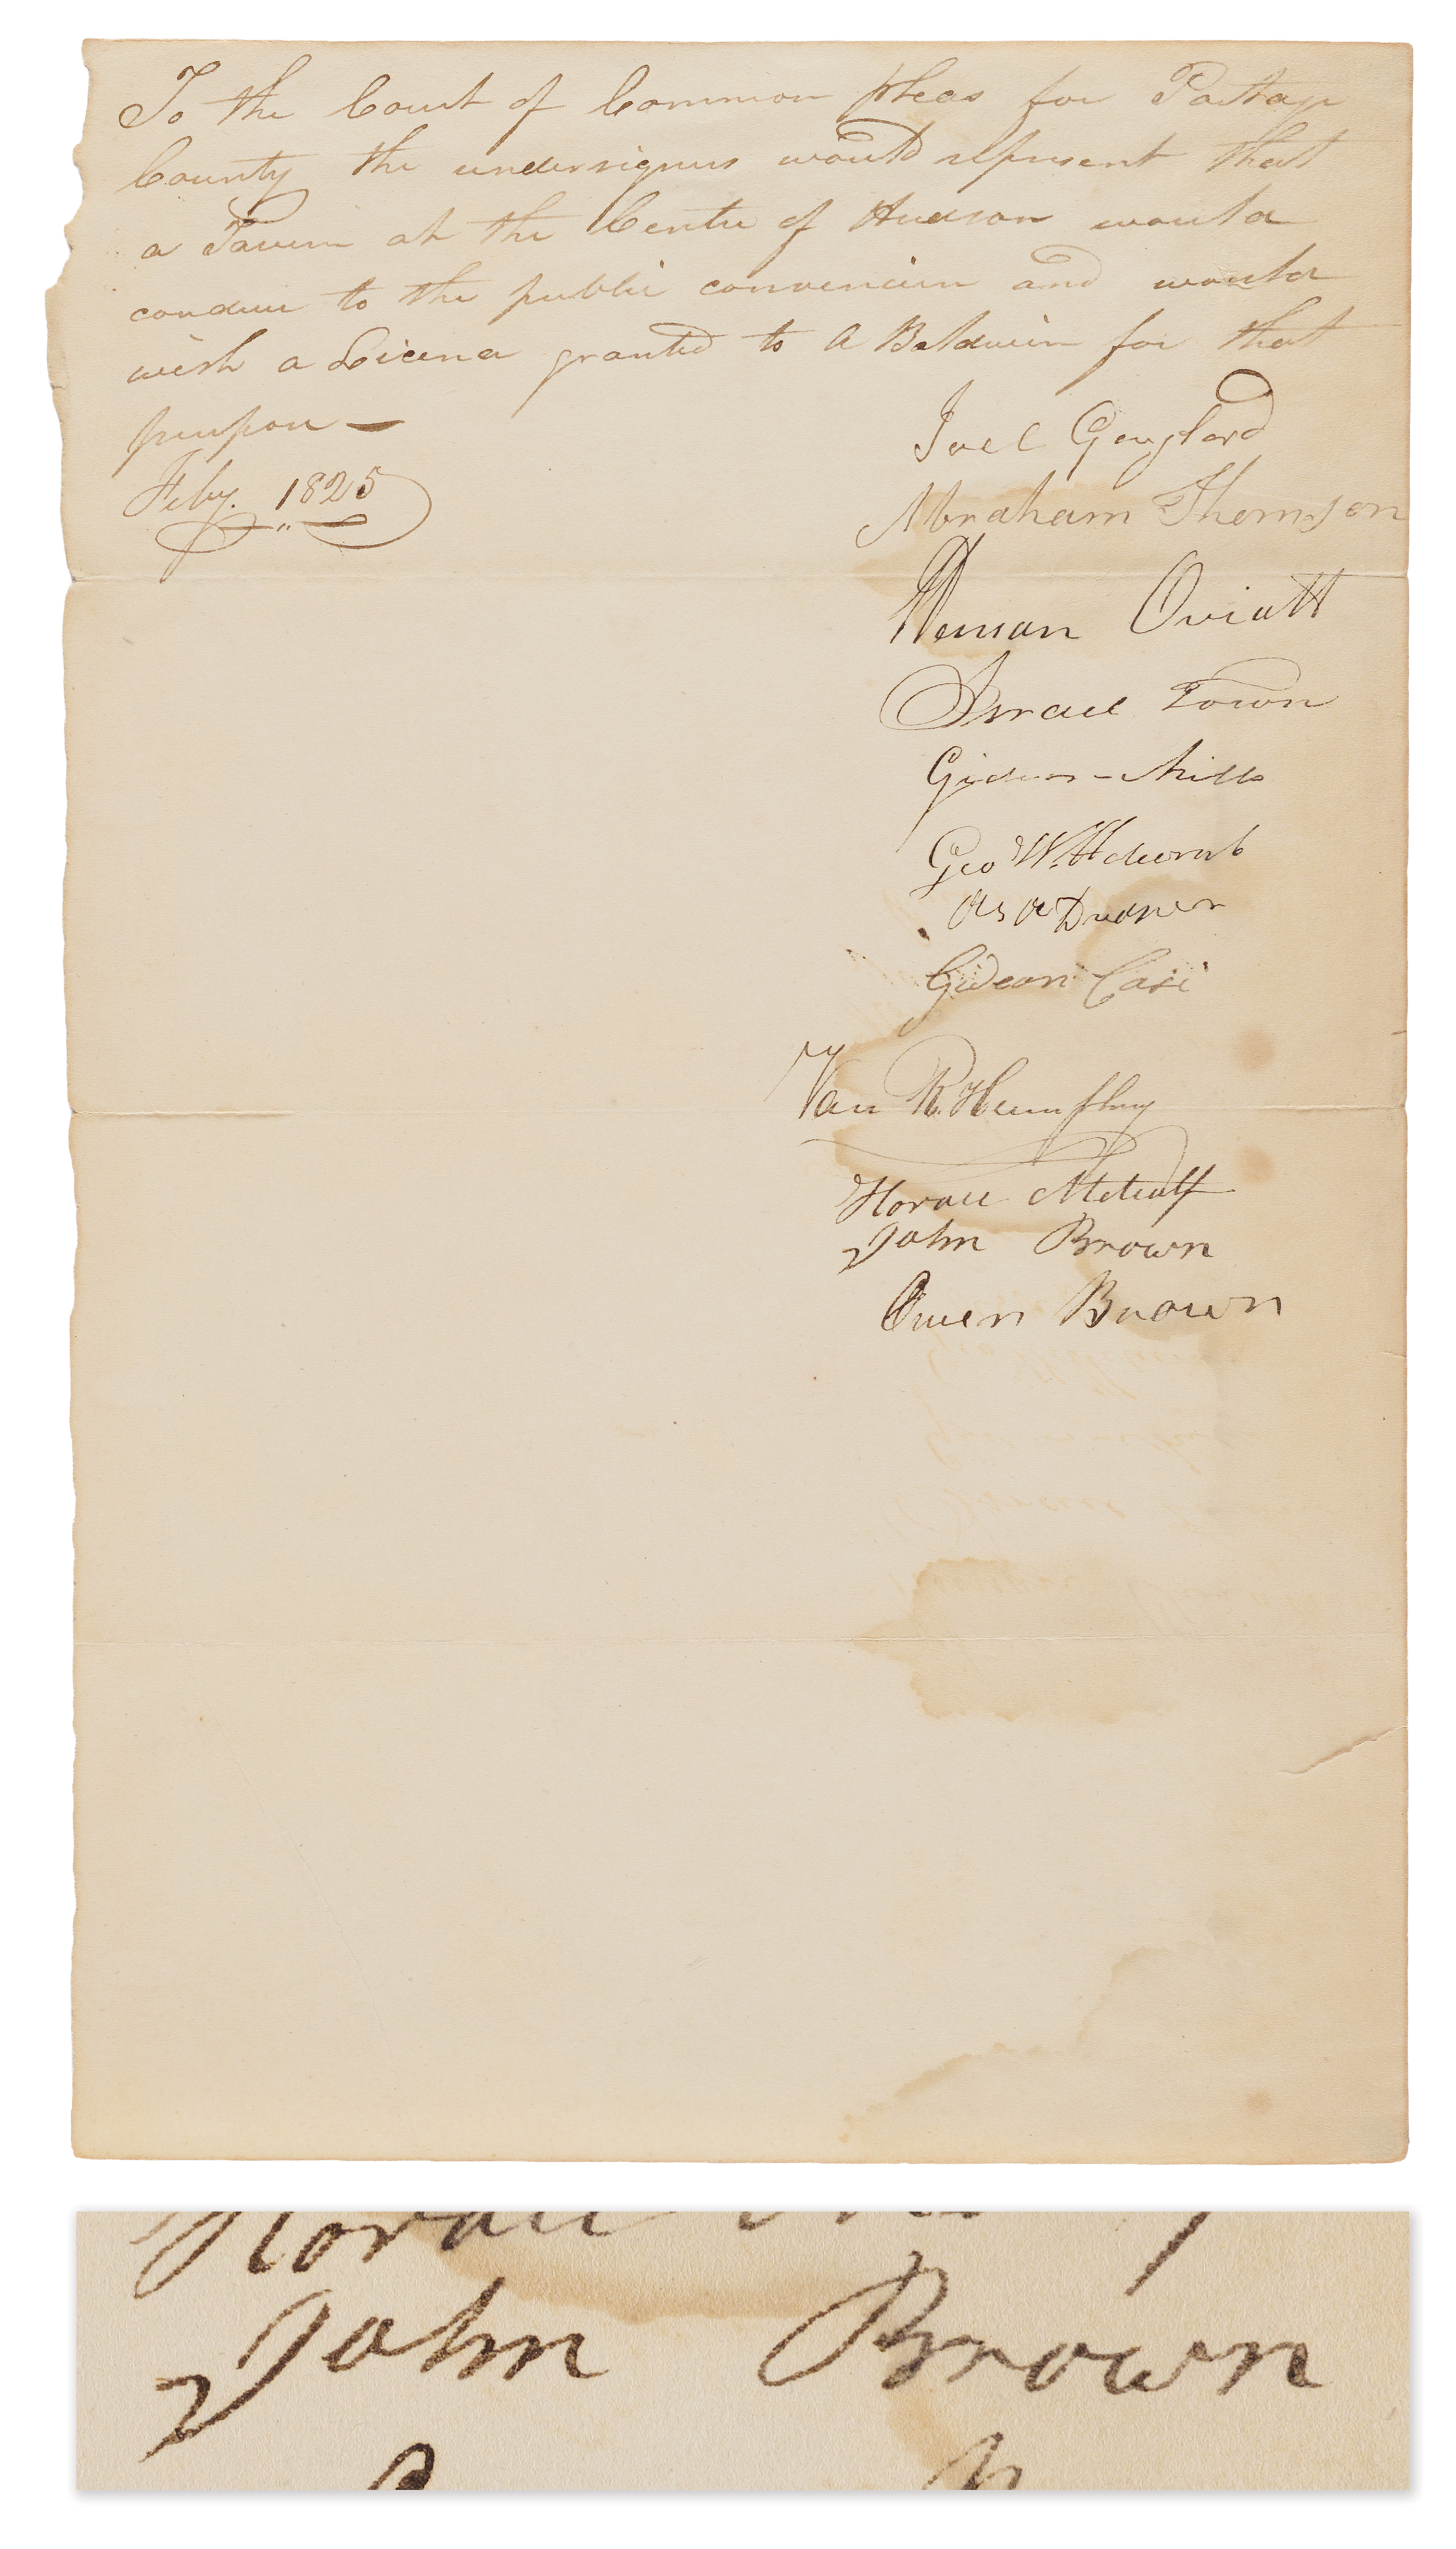 To the Court of Common Pleas for Portage
County the undersigners would represent that
a Tavern at the Centre of Hudson would
conduce to the public convenience and would
wish a Licence granted to A Baldwin for that
purpose —
Feby. 1825
Joel Gaylord
Abraham Thomson
Heman Oviatt
Israel Town
Gideon Mills
Geo W. Holcomb
Asa
Gideon Case
Van R. Humphrey
Horace Metcalf
John Brown
Owen Brown
John Brown